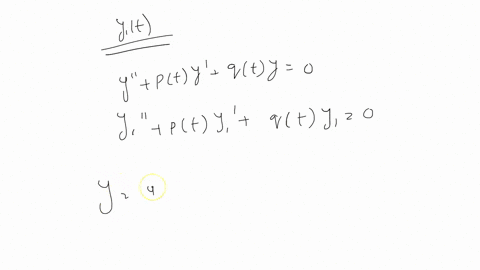 y₁(t)
y'' + p(t) y' + q(t) y = 0
y₁'' + p(t) y₁' + q(t) y₁ = 0
y = y